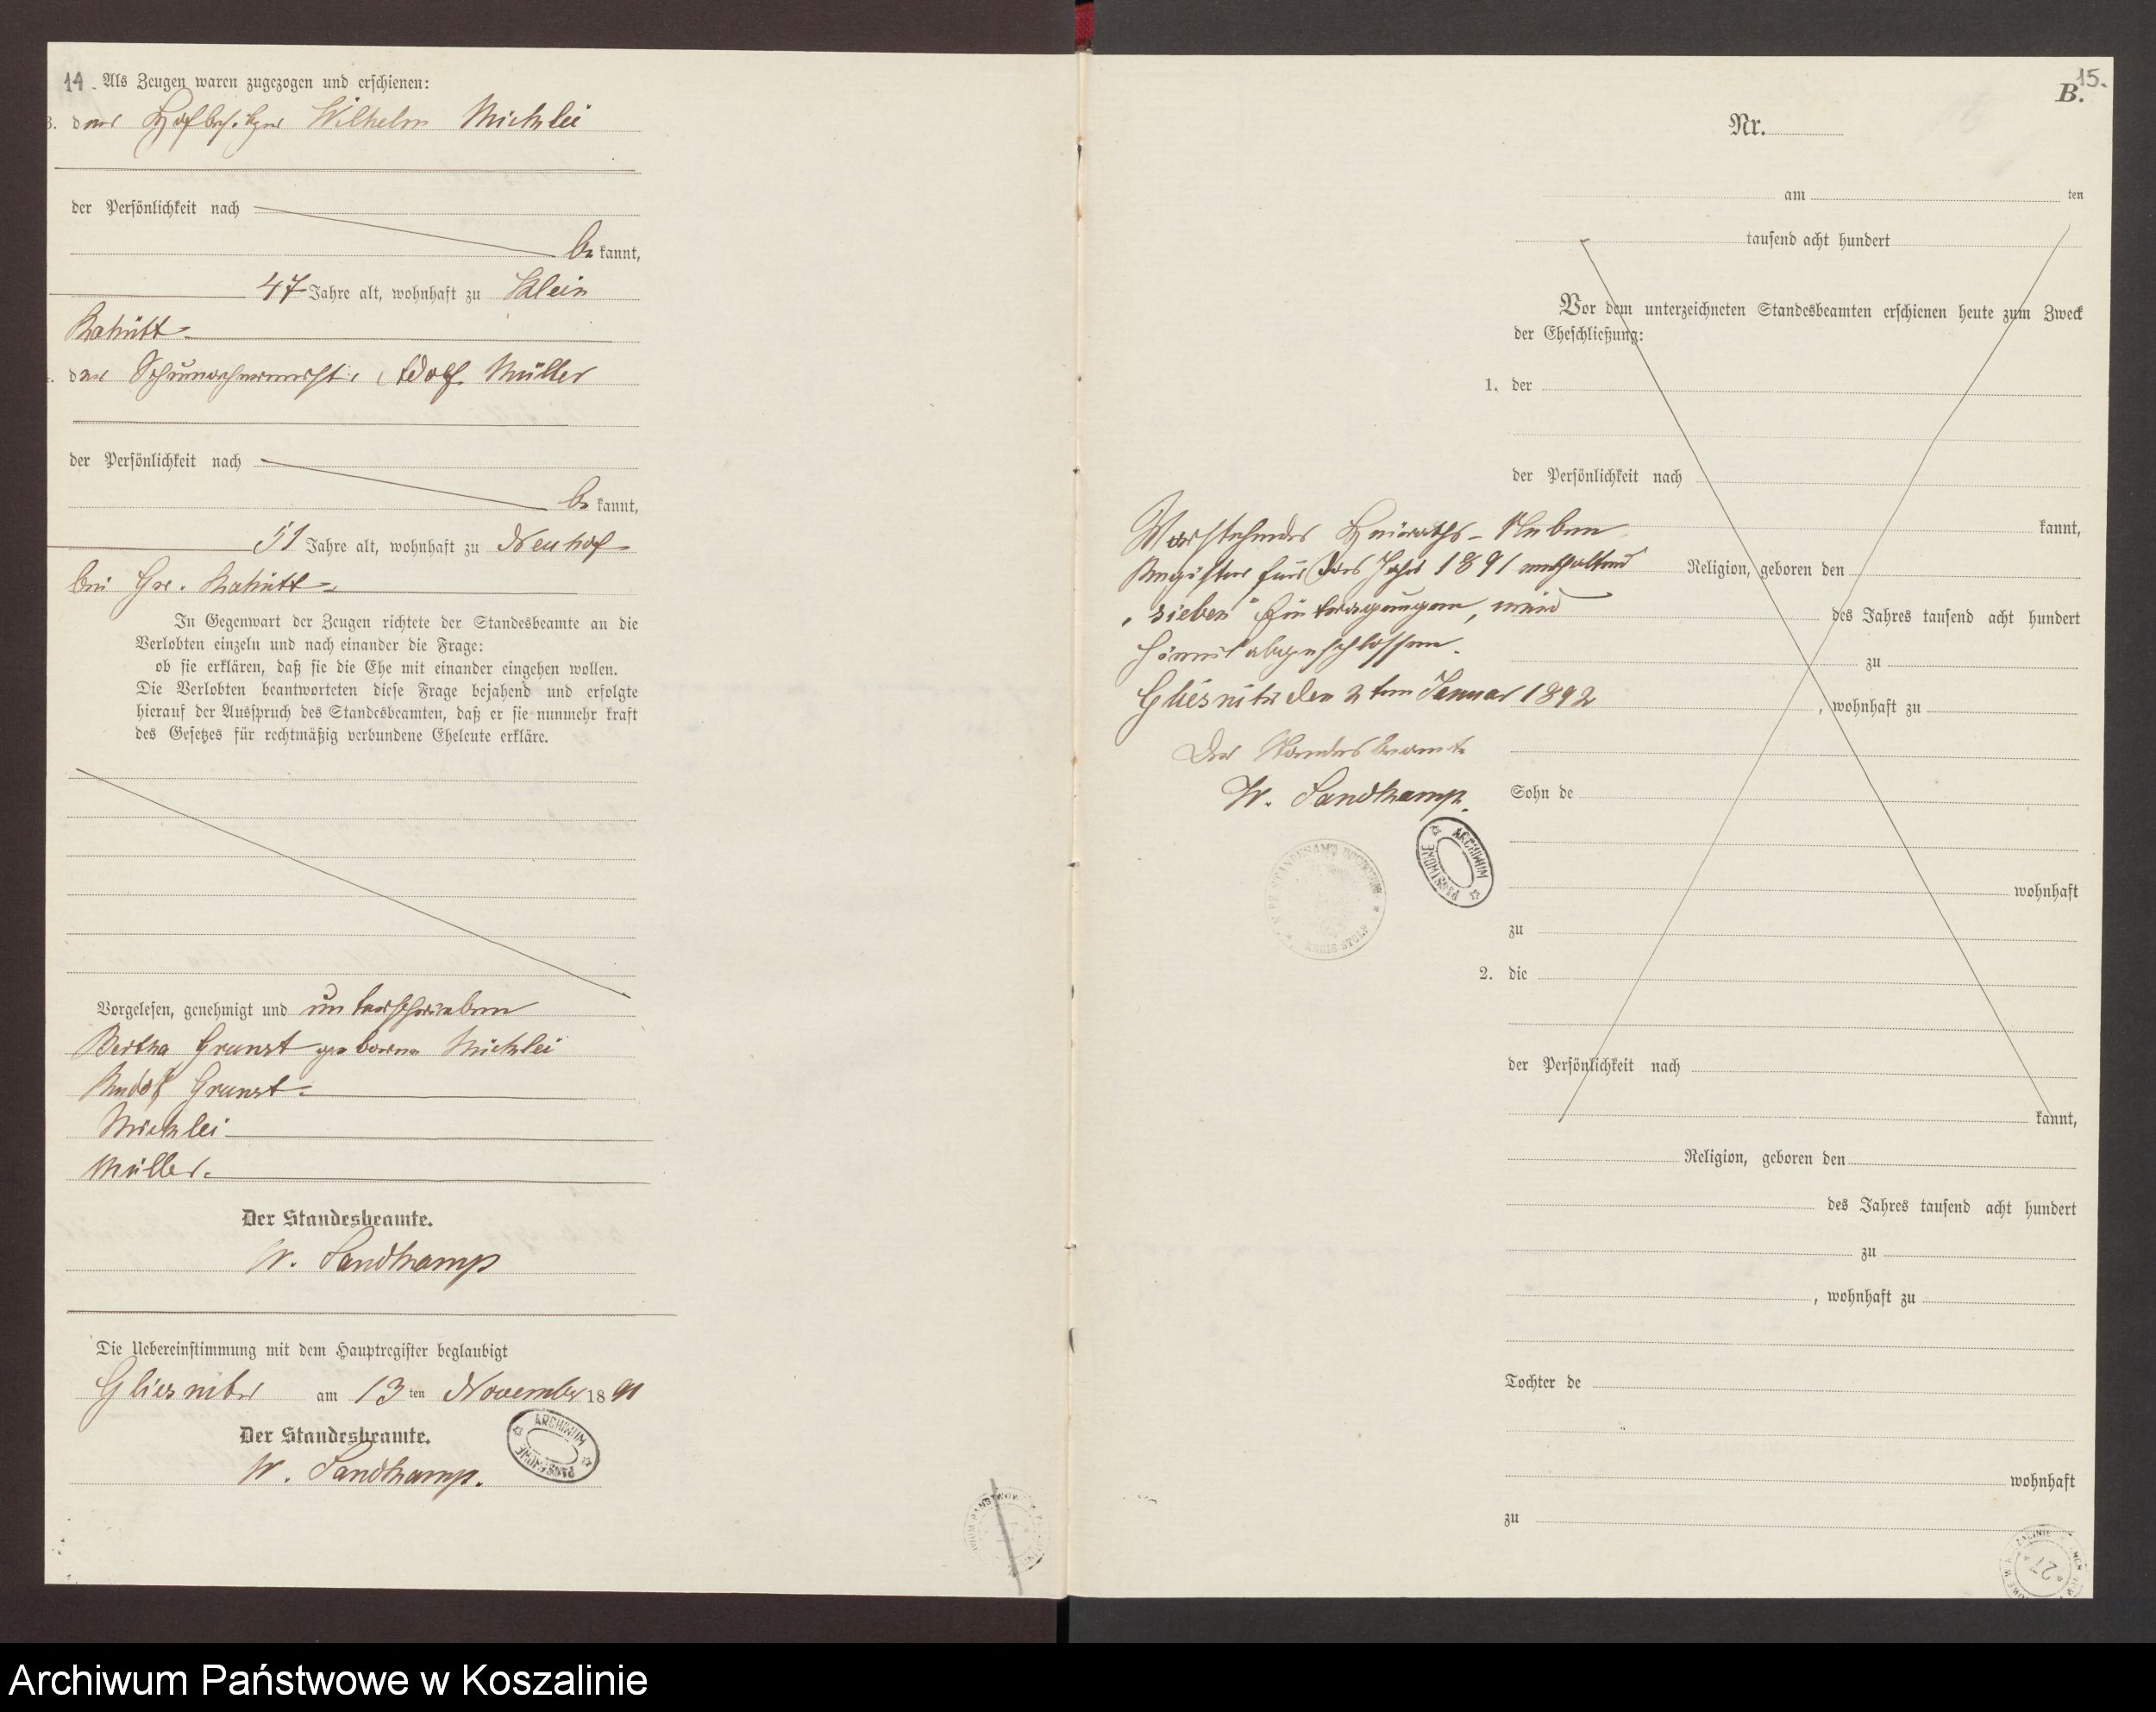 14. Als Zeugen waren zugezogen und erschienen:
3. der Hofbesitzer Wilhelm Michlei
der Persönlichkeit nach
bekannt,
47 Jahre alt, wohnhaft zu Klein
der Adolf Müller
der Persönlichkeit nach
bekannt,
51 Jahre alt, wohnhaft zu Neuhof
bei Gr.
In Gegenwart der Zeugen richtete der Standesbeamte an die
Verlobten einzeln und nach einander die Frage:
ob sie erklären, daß sie die Ehe mit einander eingehen wollen.
Die Verlobten beantworteten diese Frage bejahend und erfolgte
hierauf der Ausspruch des Standesbeamten, daß er sie nunmehr kraft
des Gesetzes für rechtmäßig verbundene Eheleute erkläre.
Vorgelesen, genehmigt und unterschrieben
Bertha Grunst geborne Michlei
Rudolf Grunst
Michlei
Müller.
Der Standesbeamte.
W. Sandkamp
Die Uebereinstimmung mit dem Hauptregister beglaubigt
Gliesnitz am 13 ten November 1891
Der Standesbeamte.
W. Sandkamp.
ARCHIWUM PAŃSTWOWE
15.
B.
Nr.
am ten
tausend acht hundert
Vor dem unterzeichneten Standesbeamten erschienen heute zum Zweck
der Eheschließung:
1. der
der Persönlichkeit nach
kannt,
Religion, geboren den
des Jahres tausend acht hundert
zu
, wohnhaft zu
Sohn de
wohnhaft
zu
2. die
der Persönlichkeit nach
kannt,
Religion, geboren den
des Jahres tausend acht hundert
zu
, wohnhaft zu
Tochter de
wohnhaft
zu
Vorstehendes Heiraths-Neben
Register für das Jahr 1891 enthaltend
„sieben" Eintragungen, wird
hiermit abgeschlossen.
Gliesnitz den 2ten Januar 1892
Der Standesbeamte
W. Sandkamp.
PR. STANDESAMT KREIS STOLP
ARCHIWUM PAŃSTWOWE
27
Archiwum Państwowe w Koszalinie